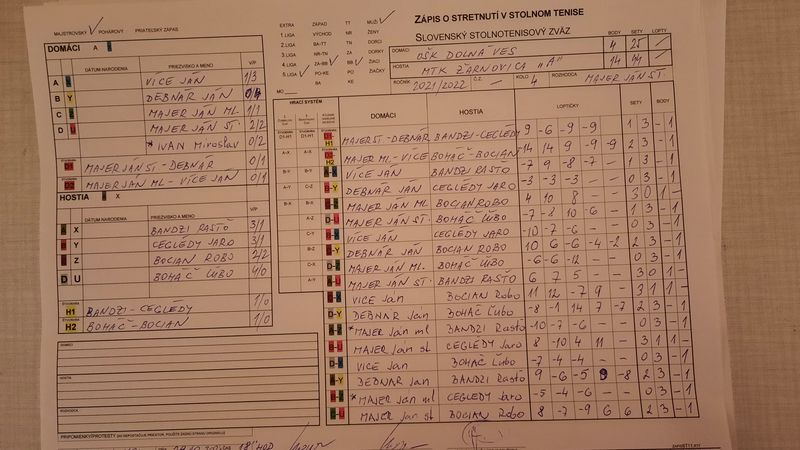 MAJSTROVSKÝ POHÁROVÝ PRIATEĽSKÝ ZÁPAS
EXTRA ZÁPAD TT MUŽI
1.LIGA VÝCHOD NR ŽENY
2.LIGA BA-TT TN DORCI
3.LIGA NR-TN ZA DORKY
4.LIGA ZA-BB BB ŽIACI
5.LIGA PO-KE PO ŽIAČKY
BA KE
ZÁPIS O STRETNUTÍ V STOLNOM TENISE
SLOVENSKÝ STOLNOTENISOVÝ ZVÄZ
BODY SETY LOPTY
DOMÁCI OŠK DOLNÁ VES 4 25
HOSTIA MTK ŽARNOVICA "A" 14
ROČNÍK 2021/2022 Č.Z. KOLO 4 ROZHODCA MAJER JÁN ST.
DOMÁCI A
DÁTUM NARODENIA PRIEZVISKO A MENO V/P
A VICE JÁN 1/3
B Y DEBNÁR JÁN
C MAJER JÁN ML 1/1
D MAJER JÁN ST. 2/2
* IVAN Miroslav 0/2
D1 MAJER JÁN ST - DEBNÁR 0/1
D2 MAJER JÁN ML - VICE JÁN 0/1
HOSTIA X
DÁTUM NARODENIA PRIEZVISKO A MENO V/P
X BANDŽI RASŤO 3/1
Y CEGLÉDY JARO 3/1
Z BOCIAN ROBO 2/2
D U BOHÁČ ĽUBO 4/0
H1 BANDŽI - CEGLÉDY 1/0
H2 BOHÁČ - BOCIAN 1/0
DOMÁCI
HOSTIA
ROZHODCA
PRIPOMIENKY/PROTESTY
HRACÍ SYSTÉM DOMÁCI HOSTIA LOPTIČKY SETY BODY
MAJER ST - DEBNÁR BANDŽI - CEGLÉDY 9 -6 -9 -9 1 3 - 1
MAJER ML - VICE BOHÁČ - BOCIAN -14 14 9 -9 -9 2 3 - 1
VICE JÁN BANDŽI RASŤO -7 9 -8 -7 - 1 3 - 1
DEBNÁR JÁN CEGLÉDY JARO -3 -3 -3 - - 0 3 - 1
MAJER JÁN ML BOCIAN ROBO 4 10 8 - - 3 0 1 -
MAJER JÁN ST. BOHÁČ ĽUBO -7 -8 10 -6 - 1 3 - 1
VICE JÁN CEGLÉDY JARO -10 -7 -6 - - 0 3 - 1
DEBNÁR JÁN BOCIAN ROBO 10 6 -6 -4 -2 2 3 - 1
MAJER JÁN ML. BOHÁČ ĽUBO -6 -6 -12 - - 0 3 - 1
MAJER JÁN ST. BANDŽI RASŤO 6 7 5 - - 3 0 1 -
VICE Ján BOCIAN Robo 11 12 -7 9 - 3 1 1 -
D-Y DEBNÁR Ján BOHÁČ Ľubo -8 -1 14 7 -7 2 3 - 1
*MAJER Ján ml BANDŽI Rasťo -10 -7 -6 - - 0 3 - 1
MAJER Ján st CEGLÉDY Jaro 8 -10 4 11 - 3 1 1 -
VICE Ján BOHÁČ Ľubo -7 -4 -4 - - 0 3 - 1
DEBNÁR Ján BANDŽI Rasťo 9 -6 -5 9 -8 2 3 - 1
*MAJER Ján ml CEGLÉDY Jaro -5 -4 -6 - - 0 3 - 1
MAJER Ján st BOCIAN Robo 8 -7 -9 6 6